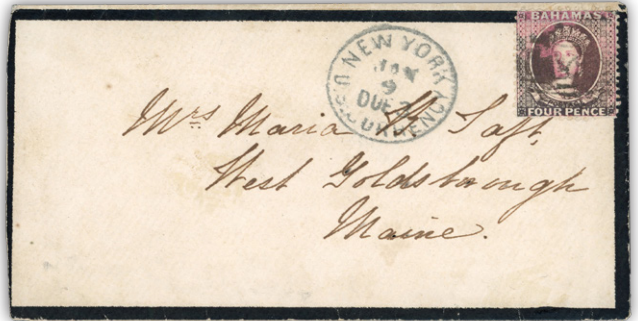 BAHAMAS
FOUR PENCE
NEW YORK
JAN
9
DUE
U.S. CURRENCY
Mrs Maria Taft,
West Goldsborough
Maine.